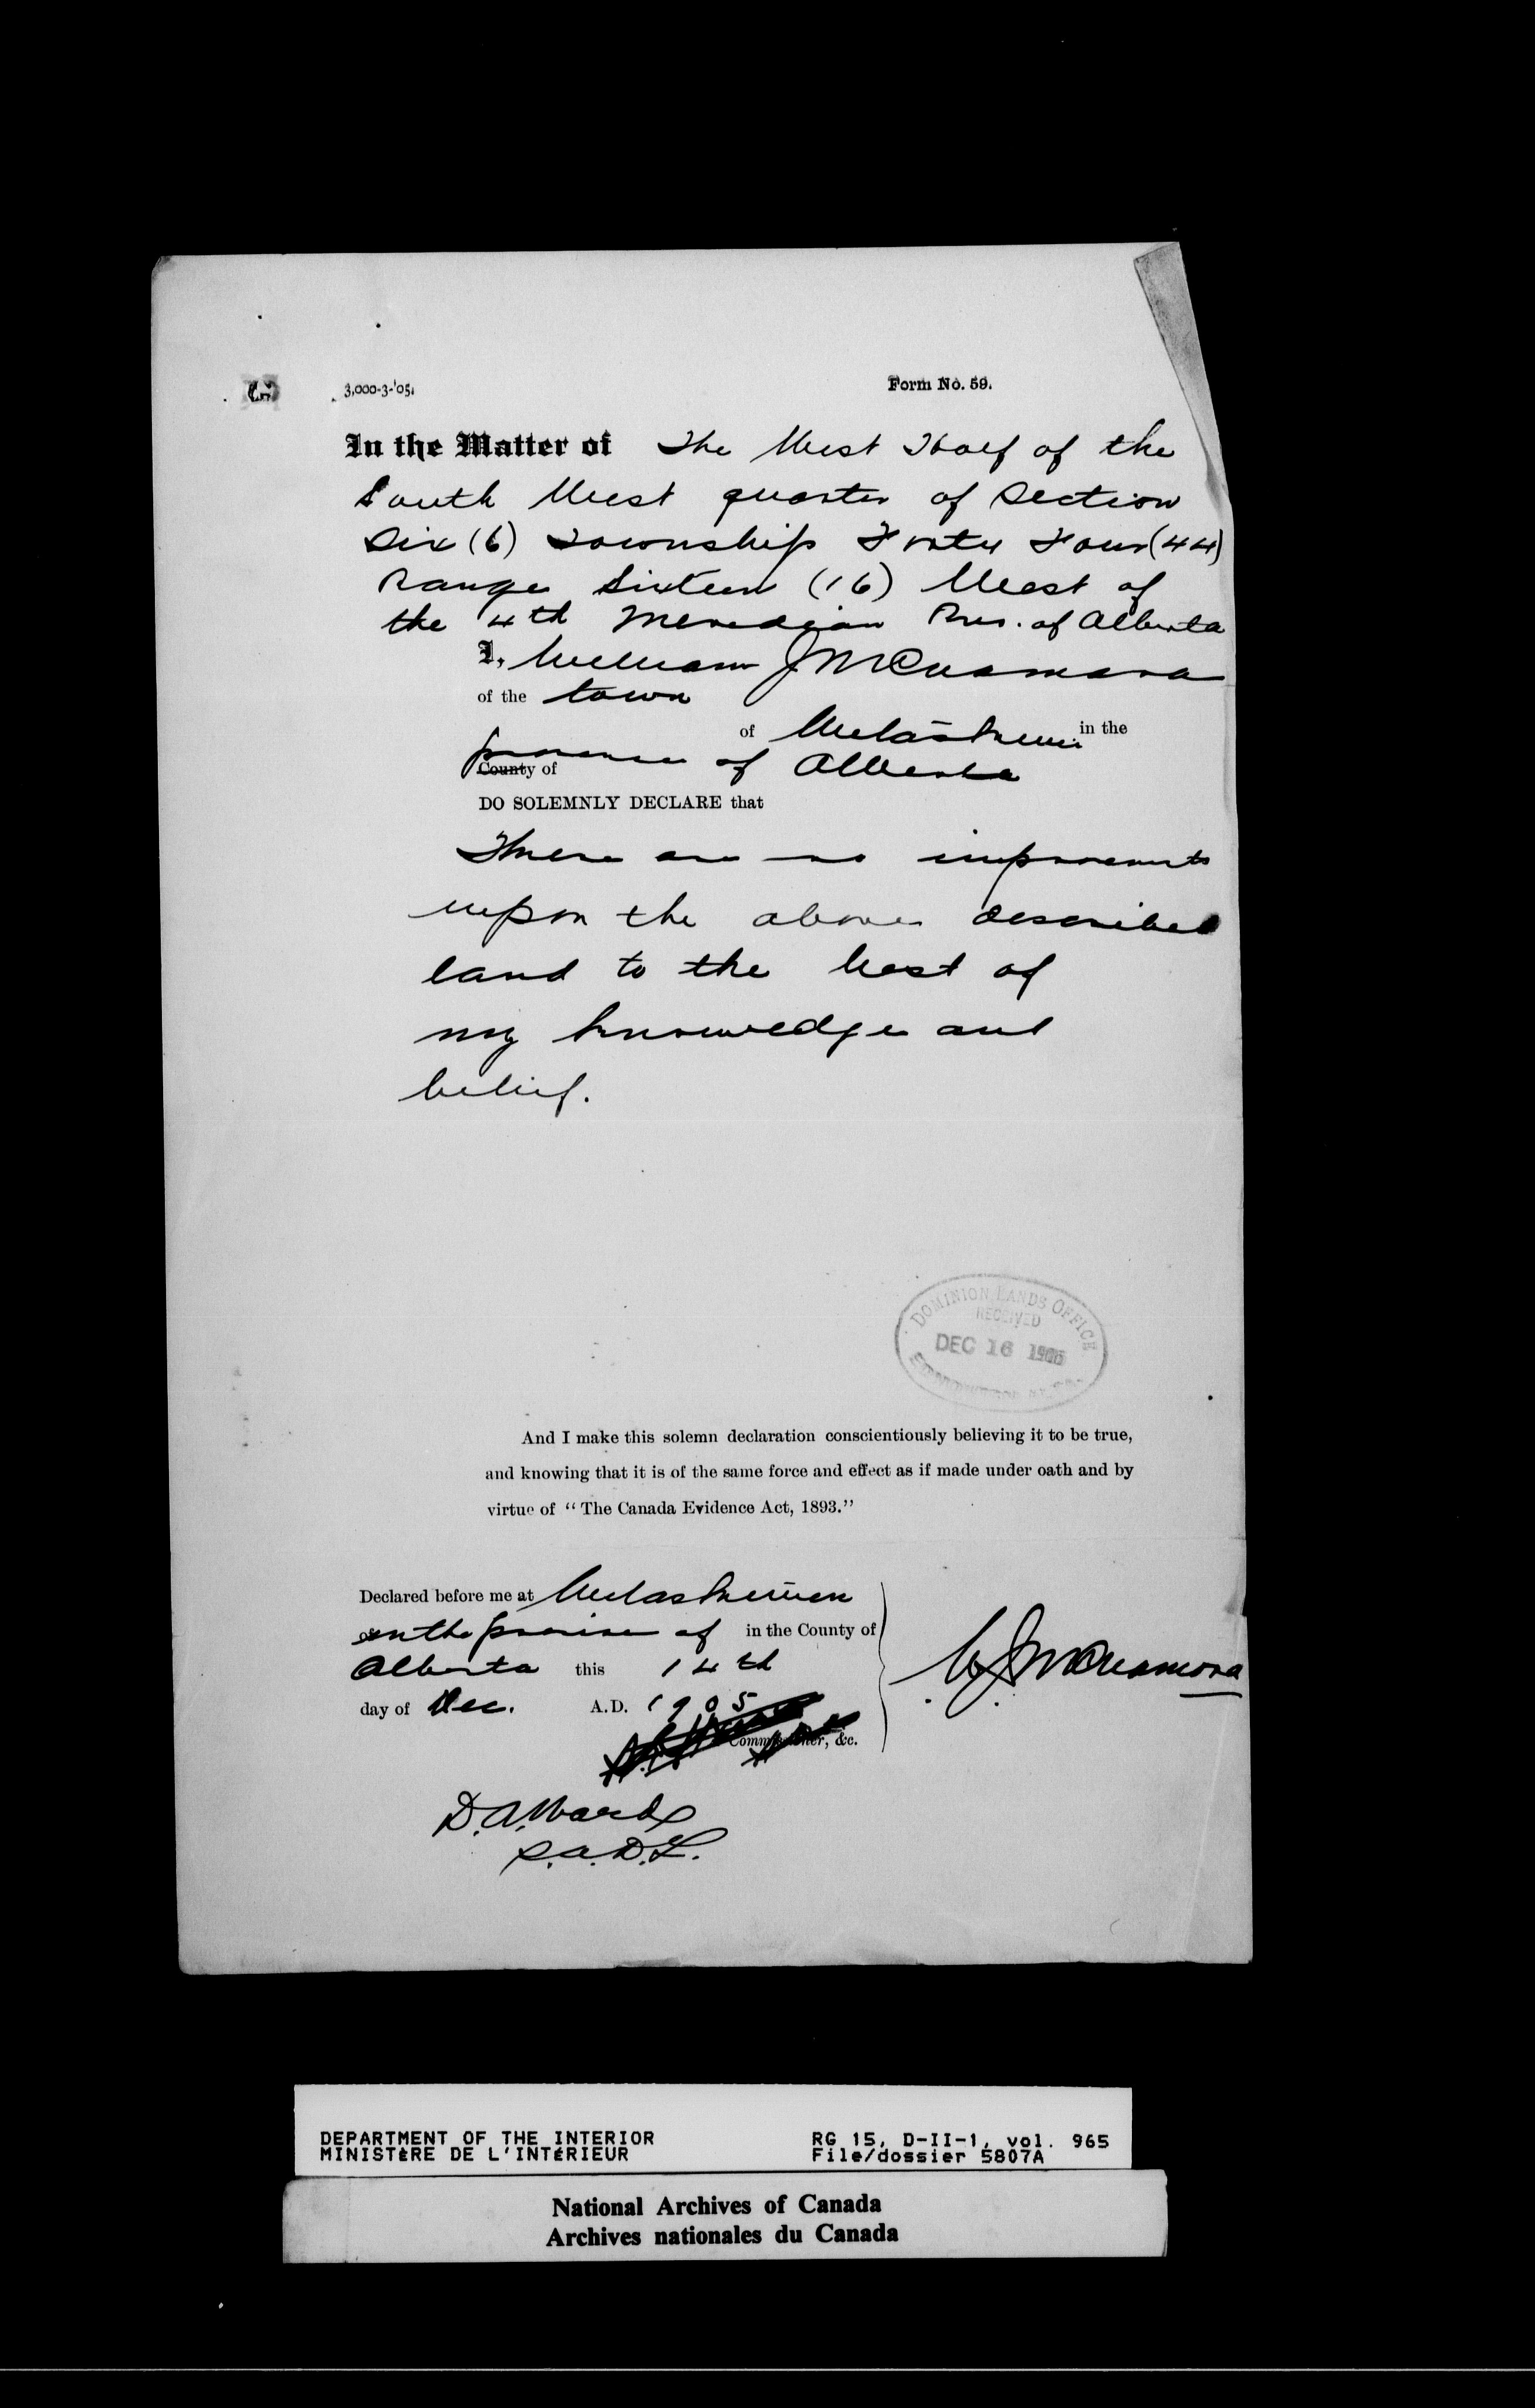 3,000-3-'05.
Form No. 59.
In the Matter of The West Half of the
South West quarter of Section
Six (6) Township Forty Four (44)
Range Sixteen (16) West of
the 4th Meredian Prov. of Alberta
I, William J McNamara
of the town
of Wetaskiwin in the
province of Alberta
County of
DO SOLEMNLY DECLARE that
There are no improvements
upon the above described
land to the best of
my knowledge and
belief.
DOMINION LANDS OFFICE
RECEIVED
DEC 16 1905
And I make this solemn declaration conscientiously believing it to be true,
and knowing that it is of the same force and effect as if made under oath and by
virtue of "The Canada Evidence Act, 1893."
Declared before me at Wetaskiwin
in the province of in the County of
Alberta this 14th
day of Dec. A.D. 1905
Commissioner, &c.
W J McNamara
D. A. Ward
S.A.D.L.
DEPARTMENT OF THE INTERIOR RG 15, D-II-1, vol. 965
MINISTÈRE DE L'INTÉRIEUR File/dossier 5807A
National Archives of Canada
Archives nationales du Canada